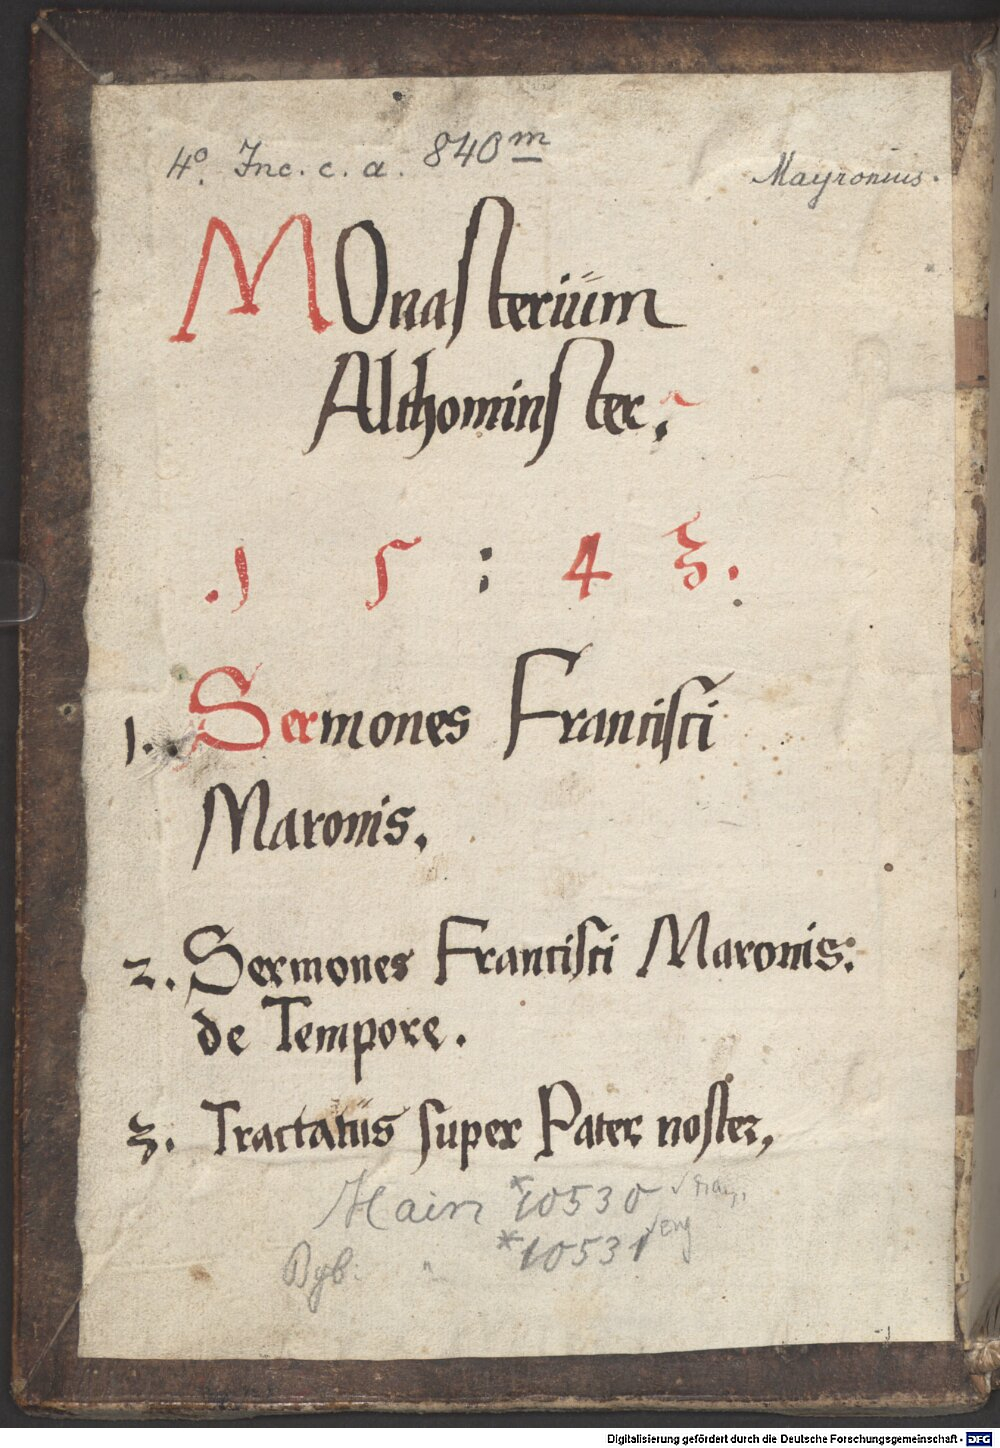 4º. Inc. c. a. 840 m
Mayronius.
MOnasterium
Althominster.
.1 5 : 4 3.
1. Sermones Francisci
Maronis.
2. Sermones Francisci Maronis:
de Tempore.
3. Tractatus super Pater noster,
Hain *10530
Byb. " *10531
Digitalisierung gefördert durch die Deutsche Forschungsgemeinschaft - DFG